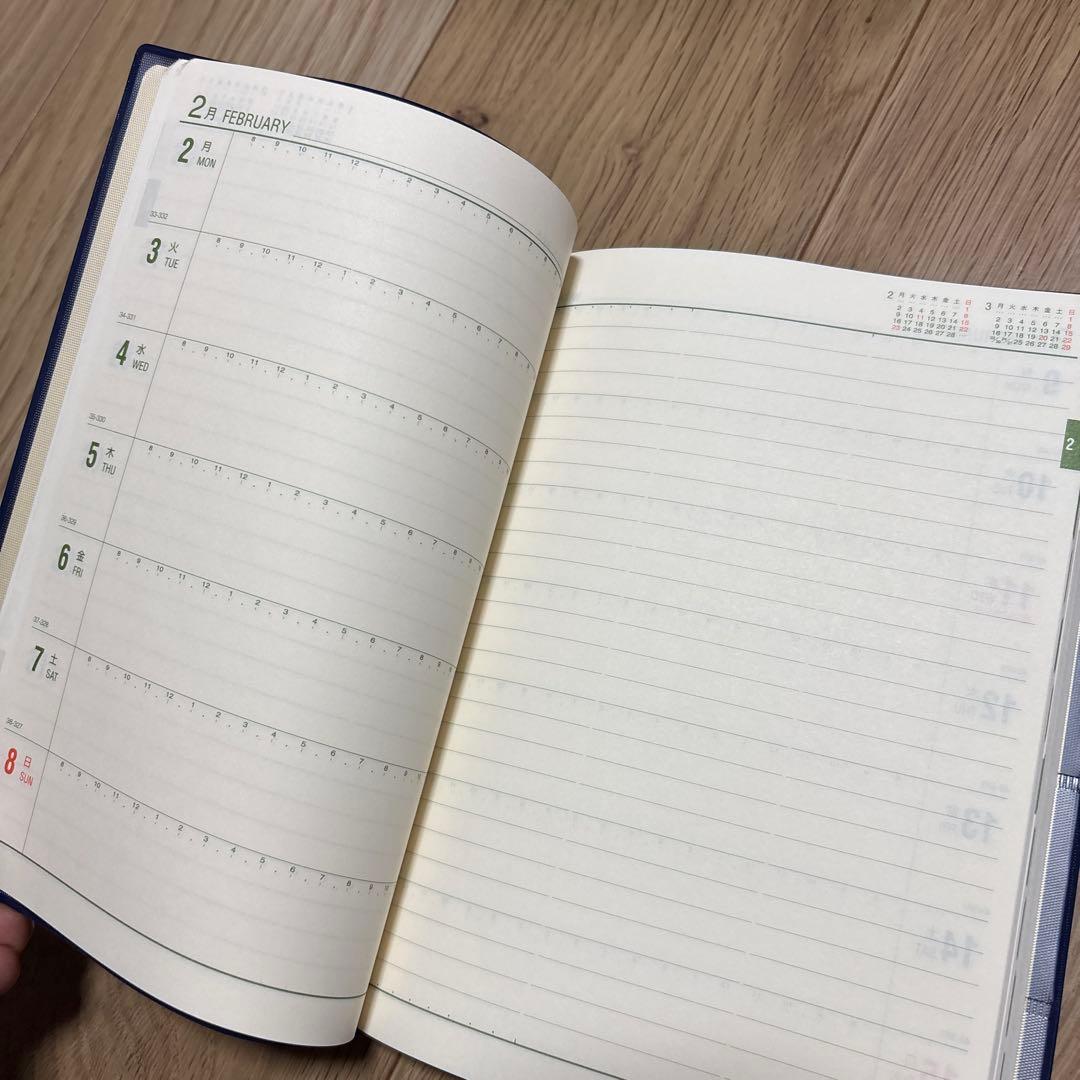 2月 FEBRUARY
2 月
MON
8 9 10 11 12 1 2 3 4 5 6 7 8
33-332
3 火
TUE
8 9 10 11 12 1 2 3 4 5 6 7 8
34-331
4 水
WED
8 9 10 11 12 1 2 3 4 5 6 7 8
35-330
5 木
THU
8 9 10 11 12 1 2 3 4 5 6 7 8
36-329
6 金
FRI
8 9 10 11 12 1 2 3 4 5 6 7 8 9
37-328
7 土
SAT
8 9 10 11 12 1 2 3 4 5 6 7 8 9
38-327
8 日
SUN
8 9 10 11 12 1 2 3 4 5 6 7 8 9 10
2 月 火 水 木 金 土 日
1
2 3 4 5 6 7 8
9 10 11 12 13 14 15
16 17 18 19 20 21 22
23 24 25 26 27 28
3 月 火 水 木 金 土 日
1
2 3 4 5 6 7 8
9 10 11 12 13 14 15
16 17 18 19 20 21 22
25 26 27 28 29
2